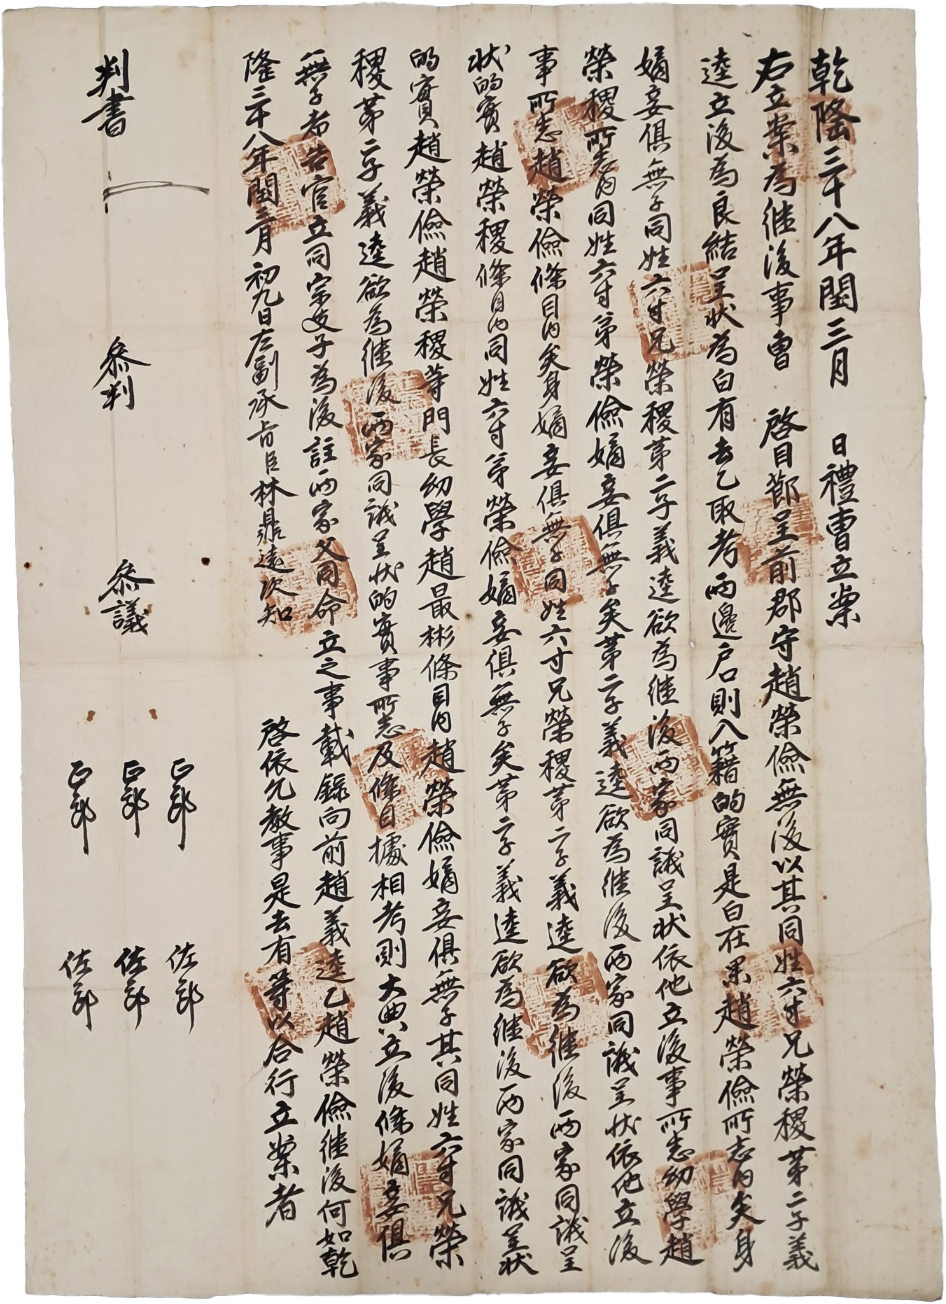 乾隆二十八年閏三月 日禮曹立案
右立案爲繼後事曹 啓目節呈前郡守趙榮儉無後以其同姓六寸兄榮稷第二子義
逵立後爲良結呈狀爲白有去乙取考兩邊戶則入籍的實是白在果趙榮儉所志內矣身
嫡妾俱無子同姓六寸兄榮稷第二子義逵欲爲繼後兩家同議呈狀依他立後事所志幼學趙
榮稷所志內同姓六寸弟榮儉嫡妾俱無子矣第二子義逵欲爲繼後兩家同議呈狀依他立後
事所志趙榮儉條目內矣身嫡妾俱無子同姓六寸兄榮稷第二子義逵欲爲繼後兩家同議呈
狀的實趙榮稷條目內同姓六寸弟榮儉嫡妾俱無子矣第二子義逵欲爲繼後兩家同議呈狀
的實趙榮儉趙榮稷等門長幼學趙最彬條目內趙榮儉嫡妾俱無子其同姓六寸兄榮
稷第二子義逵欲爲繼後兩家同議呈狀的實事所志及條目據相考則大典立後條嫡妾俱
無子者告官立同宗支子爲後註兩家父同命立之事載錄向前趙義逵乙趙榮儉繼後何如乾
隆二十八年閏三月初九日左副承旨臣林鼎遠次知 啓依允教事是去有等以合行立案者
判書 參判 參議 正郎 佐郎
正郎 佐郎
正郎 佐郎